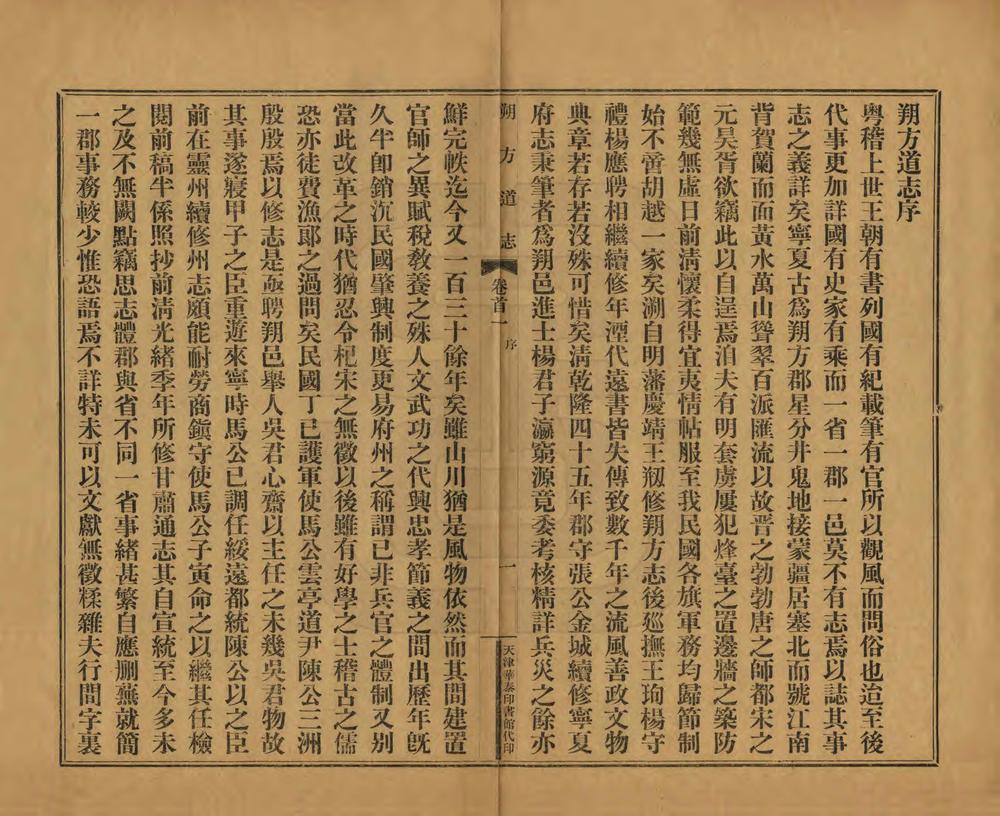 朔方道志序
粵稽上世王朝有書列國有紀載筆有官所以觀風而問俗也迨至後
代事更加詳國有史家有乘而一省一郡一邑莫不有志焉以誌其事
志之義詳矣寧夏古爲朔方郡星分井鬼地接蒙疆居塞北而號江南
背賀蘭而面黃水萬山聳翠百派匯流以故晋之勃勃唐之師都宋之
元昊胥欲竊此以自逞焉洎夫有明套虜屢犯烽臺之置邊牆之築防
範幾無虛日前淸懷柔得宜夷情帖服至我民國各旗軍務均歸節制
始不啻胡越一家矣溯自明藩慶靖王剏修朔方志後廵撫王珣楊守
禮楊應聘相繼續修年湮代遠書皆失傳致數千年之流風善政文物
典章若存若沒殊可惜矣淸乾隆四十五年郡守張公金城續修寧夏
府志秉筆者爲朔邑進士楊君子瀛窮源竟委考核精詳兵災之餘亦
朔方道志
卷首一
序
一
天津華泰印書館代印
鮮完帙迄今又一百三十餘年矣雖山川猶是風物依然而其間建置
官師之異賦稅敎養之殊人文武功之代興忠孝節義之間出歷年旣
久半卽銷沉民國肇興制度更易府州之稱謂已非兵官之體制又别
當此改革之時代猶忍令杞宋之無徵以後雖有好學之士稽古之儒
恐亦徒費漁郎之過問矣民國丁已護軍使馬公雲亭道尹陳公三洲
殷殷焉以修志是亟聘朔邑舉人吳君心齋以主任之未幾吳君物故
其事遂寢甲子之臣重遊來寧時馬公已調任綏遠都統陳公以之臣
前在靈州續修州志頗能耐勞商鎭守使馬公子寅命之以繼其任檢
閱前稿半係照抄前淸光緒季年所修甘肅通志其自宣統至今多未
之及不無闕點竊思志體郡與省不同一省事緒甚繁自應删蕪就簡
一郡事務較少惟恐語焉不詳特未可以文獻無徵糅雜夫行間字裏